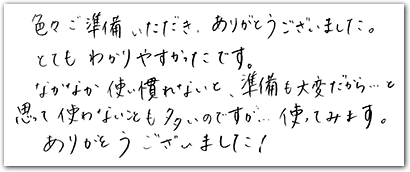 色々ご準備いただき、ありがとうございました。
とても わかりやすかったです。
なかなか 使い慣れないと、準備も大変だから…と
思って 使わないことも 多いのですが… 使ってみます。
ありがとう ございました!